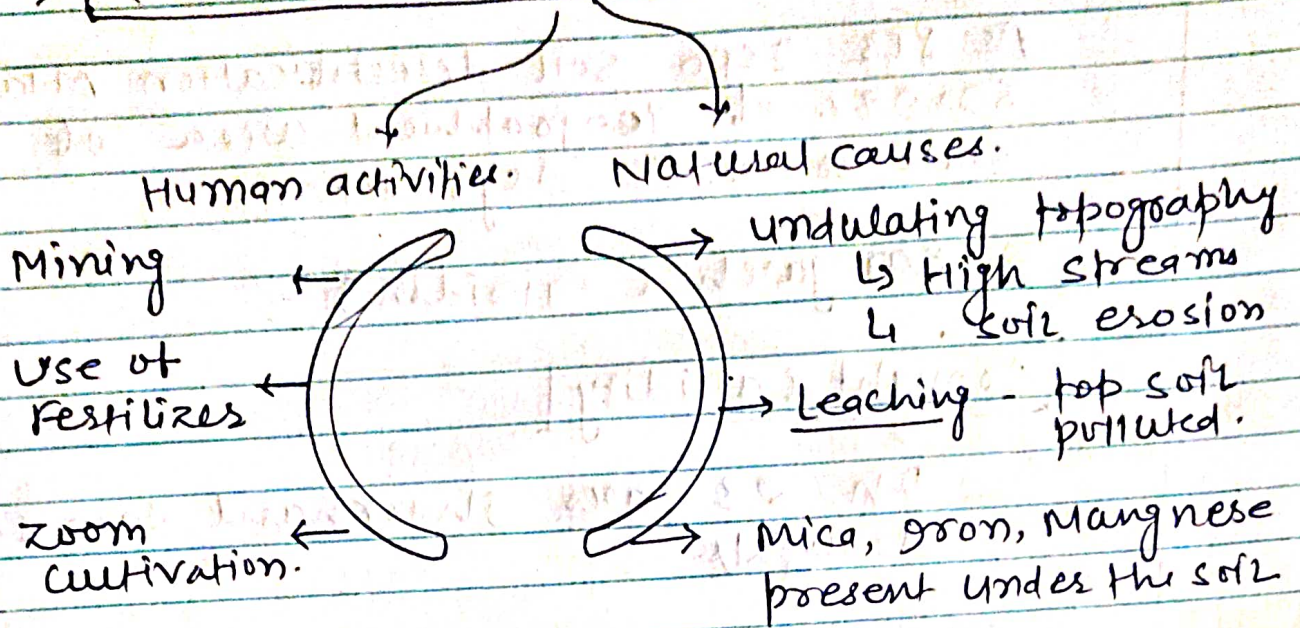 Human activities.
Natural causes.
Mining
Use of
Fertilizers
Zoom
cultivation.
undulating topography
↳ High streams
↳ soil erosion
Leaching - top soil
polluted.
Mica, Iron, Mangnese
present under the soil